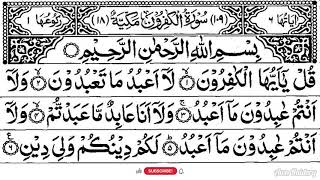 اٰیَاتُهَا ٦ (١٠٩) سُوْرَةُ الْكٰفِرُوْنَ مَكِّيَّةٌ (١٨) رُكُوْعُهَا ١
بِسْمِ اللّٰهِ الرَّحْمٰنِ الرَّحِيْمِ
قُلْ يٰٓاَيُّهَا الْكٰفِرُوْنَ ۙ ١ لَاۤ اَعْبُدُ مَا تَعْبُدُوْنَ ۙ ٢ وَلَاۤ
اَنْتُمْ عٰبِدُوْنَ مَاۤ اَعْبُدُ ۚ ٣ وَلَاۤ اَنَا عَابِدٌ مَّا عَبَدْتُّمْ ۙ ٤ وَلَاۤ
اَنْتُمْ عٰبِدُوْنَ مَاۤ اَعْبُدُ ؕ ٥ لَكُمْ دِيْنُكُمْ وَلِيَ دِيْنِ ٦
SUBSCRIBE!